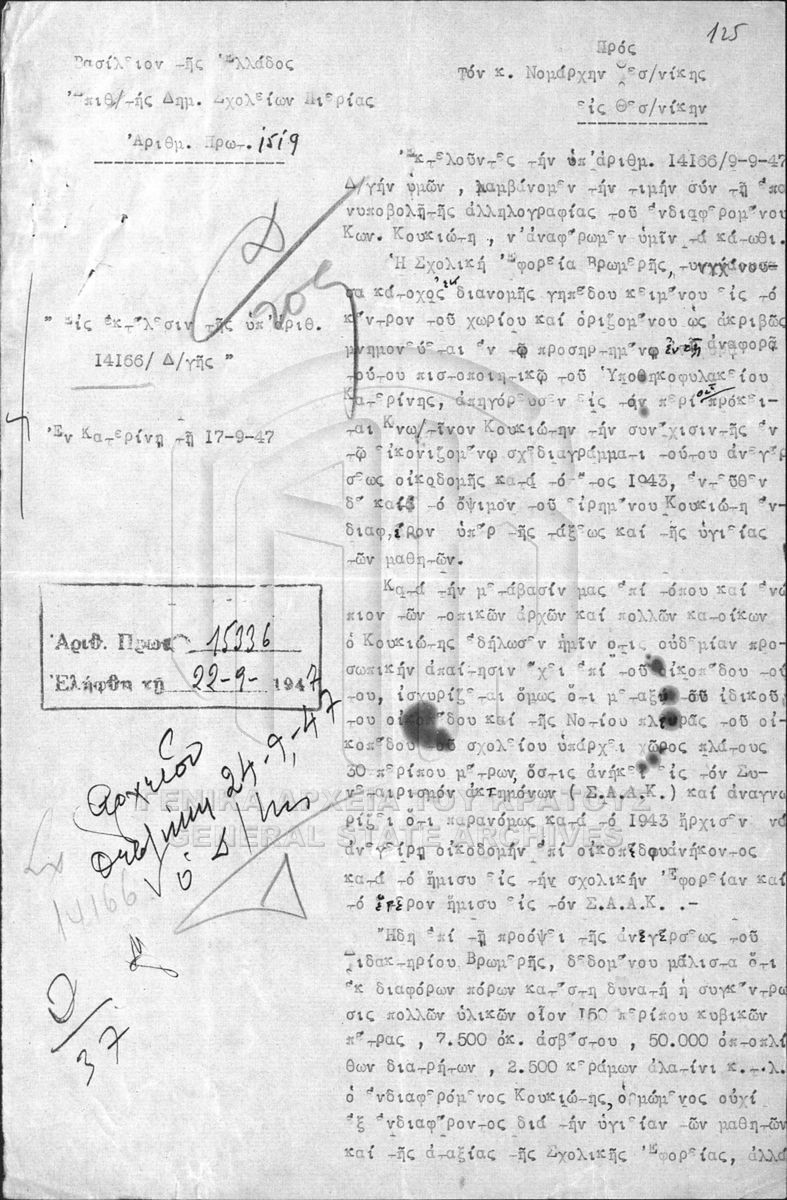 125
Βασίλειον τῆς Ἑλλάδος
Ἐπιθ/τής Δημ. Σχολείων Πιερίας
Ἀριθμ. Πρωτ. 1519
Πρός
Τόν κ. Νομάρχην Θεσ/νίκης
εἰς Θεσ/νίκην
" Εἰς ἐκτέλεσιν τῆς ὑπ'ἀριθ.
14166/ Δ/γῆς "
Ἐν Κατερίνῃ τῇ 17-9-47
Ἐκτελοῦντες τήν ὑπ'ἀριθμ. 14166/9-9-47
Δ/γήν ὑμῶν , λαμβάνομεν τήν τιμήν σύν τῇ ἐπα
νυποβολῇ τῆς ἀλληλογραφίας τοῦ ἐνδιαφερομένου
Κων. Κουκιώτη , ν'ἀναφέρωμεν ὑμῖν τά κάτωθι.
Ἡ Σχολική Ἐφορεία Βρωμερῆς, τυγχάνουσα
σα κάτοχος διανομῆς γηπέδου κειμένου εἰς τό
κέντρον τοῦ χωρίου καί ὁριζομένου ὡς ἀκριβῶς
μνημονεύεται ἐν τῷ προσηρτημένῳ ἀναφορᾷ
τούτου πιστοποιητικῷ τοῦ Ὑποθηκοφυλακείου
Κατερίνης, ἀπηγόρευσεν εἰς τόν περί οὗ πρόκει-
ται Κων/τῖνον Κουκιώτην τήν συνέχισιν τῆς ἐν
τῷ εἰκονιζομένῳ σχεδιαγράμματι τούτου ἀνεγέρ
σεως οἰκοδομῆς κατά τό ἔτος 1943, ἐντεῦθεν
δέ καί τό ὄψιμον τοῦ εἰρημένου Κουκιώτη ἐν-
διαφέρον ὑπέρ τῆς τάξεως καί τῆς ὑγιείας
τῶν μαθητῶν.
Κατά τήν μετάβασίν μας ἐπί τόπου καί ἐνώ
πιον τῶν τοπικῶν ἀρχῶν καί πολλῶν κατοίκων
ὁ Κουκιώτης ἐδήλωσεν ἡμῖν ὅτι οὐδεμίαν προ-
σωπικήν ἀπαίτησιν ἔχει ἐπί τοῦ οἰκοπέδου τού
του, ἰσχυρίζεται ὅμως ὅτι μεταξύ τοῦ ἰδικοῦ
του οἰκοπέδου καί τῆς Νοτίου πλευρᾶς τοῦ οἰ-
κοπέδου τοῦ σχολείου ὑπάρχει χῶρος πλάτους
30 περίπου μέτρων, ὅστις ἀνήκει εἰς τόν Συ-
νεταιρισμόν ἀκτημόνων ( Σ.Α.Α.Κ.) καί ἀναγνω
ρίζει ὅτι παρανόμως κατά τό 1943 ἤρχισεν νά
ἀνεγείρῃ οἰκοδομήν ἐπί οἰκοπέδου ἀνήκοντος
κατά τό ἥμισυ εἰς τήν σχολικήν Ἐφορείαν καί
τό ἕτερον ἥμισυ εἰς τόν Σ.Α.Α.Κ. .-
Ἤδη ἐπί τῇ προόψει τῆς ἀνεγέρσεως τοῦ
Διδακτηρίου Βρωμερῆς, δεδομένου μάλιστα ὅτι
ἐκ διαφόρων πόρων κατέστη δυνατή ἡ συγκέντρω
σις πολλῶν ὑλικῶν οἷον 150 περίπου κυβικῶν
πέτρας , 7.500 ὀκ. ἀσβέστου , 50.000 ὀπτοπλί
θων διατρήτων , 2.500 κεράμων ἀλατίνι κ.τ.λ.
ὁ ἐνδιαφερόμενος Κουκιώτης, ὁρμώμενος οὐχί
ἐξ ἐνδιαφέροντος διά τήν ὑγιείαν τῶν μαθητῶν
καί τῆς ἀταξίας τῆς Σχολικῆς Ἐφορείας, ἀλλά
Ἀριθ. Πρωτ. 15336
Ἐλήφθη τῇ 22-9- 1947
Ἀρχεῖον
24-9-47
ὁ Δ/της
14166
37
ΓΕΝΙΚΑ ΑΡΧΕΙΑ ΤΟΥ ΚΡΑΤΟΥΣ
GENERAL STATE ARCHIVES